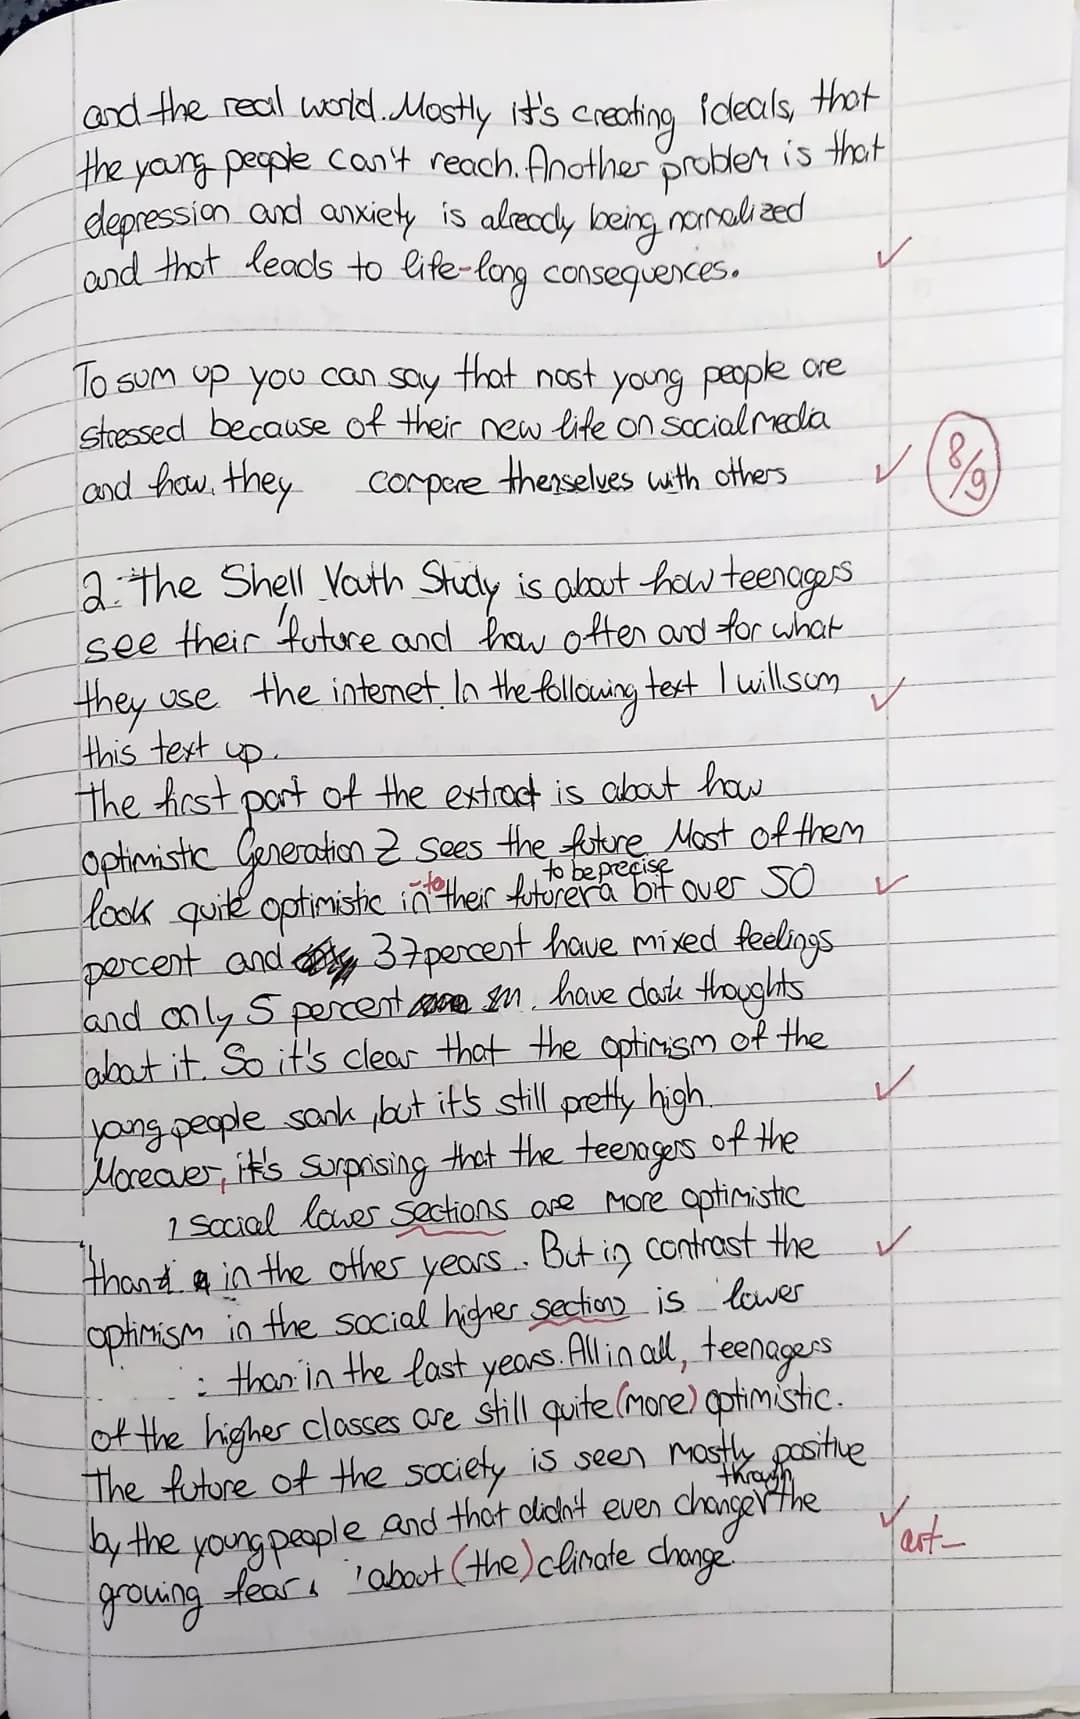 and the real world. Mostly it's creating ideals, that
the young people can't reach. Another problem is that
depression and anxiety is already being normalized
and that leads to life-long consequences.
To sum up you can say that most young people are
stressed because of their new life on social media
and how they compare themselves with others
8/9
2. The Shell Youth Study is about how teenagers
see their future and how often and for what
they use the internet. In the following text I will sum
this text up.
The first part of the extract is about how
optimistic Generation Z sees the future. Most of them
to be precise
look quite optimistic in to their future a bit over 50
percent and 37 percent have mixed feelings
and only 5 percent have dark thoughts
about it. So it's clear that the optimism of the
young people sank, but it's still pretty high.
Moreover, it's surprising that the teenagers of the
social lower sections are more optimistic
than in the other years. But in contrast the
optimism in the social higher sections is lower
than in the last years. All in all, teenagers
of the higher classes are still quite (more) optimistic.
The future of the society is seen mostly positive
through
by the young people and that didn't even change the
growing fear about (the) climate change.
art-